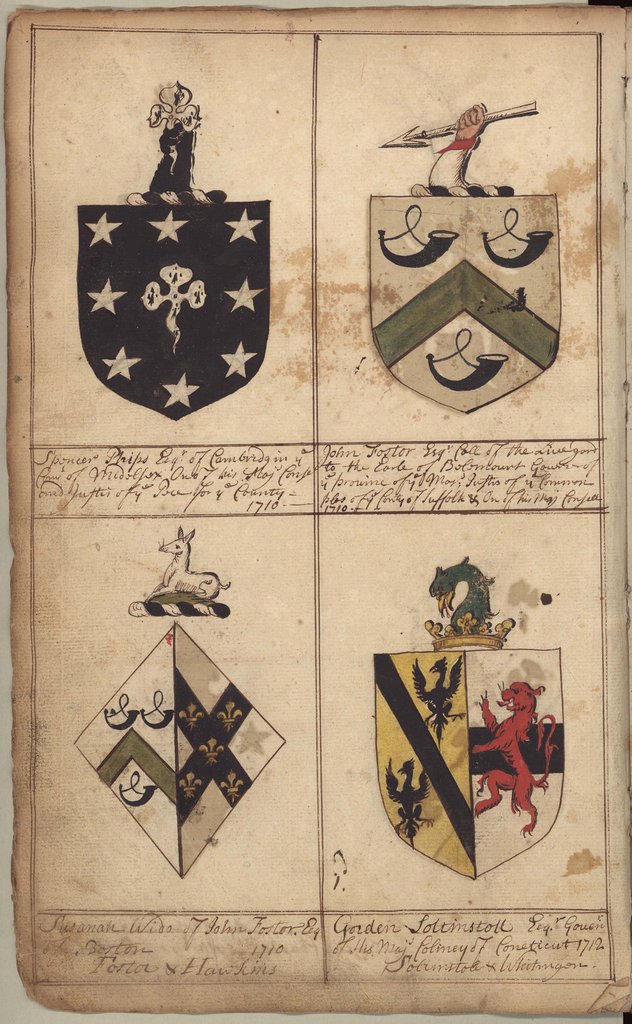 Spencer Phips Esqr of Cambridg in ye
Conty of Midelsex One of his Majs Consel
and Justis of ye Pece for ye County
1710.
John Foster Esqr Coll of the Live gard
to the Earle of Belemount Govenr of
ye provine of ye Mas; Justis of ye Common
ples of ye Conty of Suffolk & On of his Majs Consell
1710
Susanah Wido of John Foster. Esq
of Boston 1710
Foster & Hawkins
Gorden Soltinstoll Esqr Govenr
of His Majs Coliney of Coneticut 1712
Soltinstole & Whitingon.